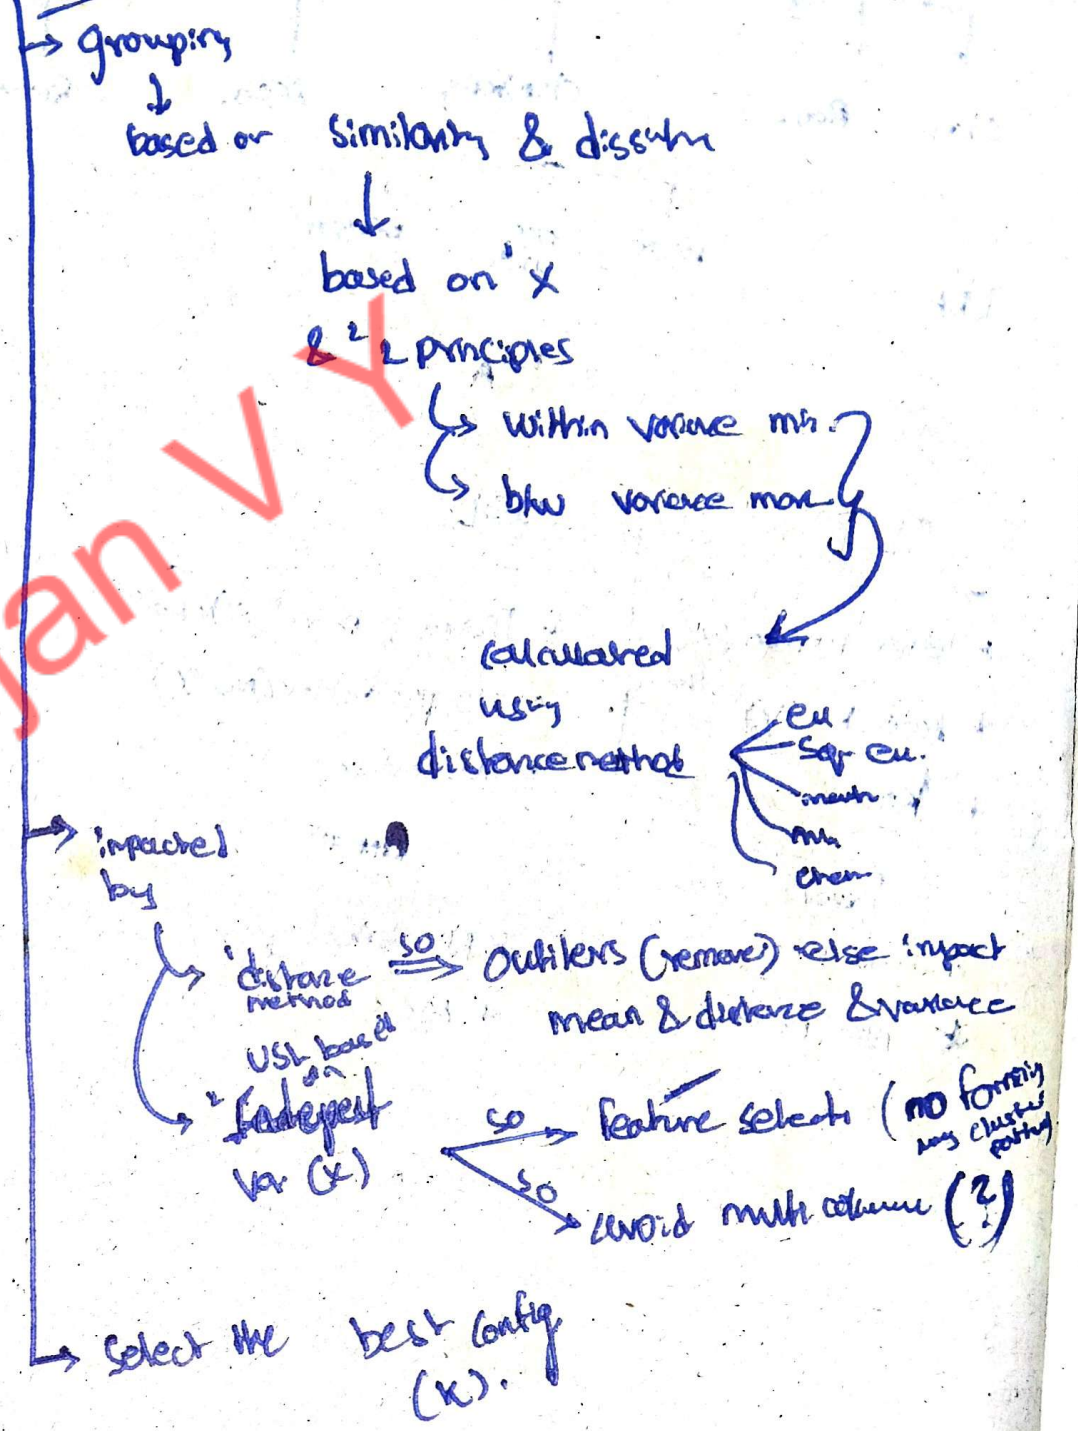 → grouping
↓
based on similarity & dissim
↓
based on ¹ X
& ² 2 principles
→ within variance min.
→ b/w variance max
calculated
using
distance method
eu
Sqr eu.
man
impacted
by
¹ distance method so ⇒ Outliers (remove) else impact
mean & distance & variance
USL based on
² Indepest
var (X)
so → feature selecti (no forming
cluster
so → avoid multi (?)
→ Select the best config
(K).
jan V Y